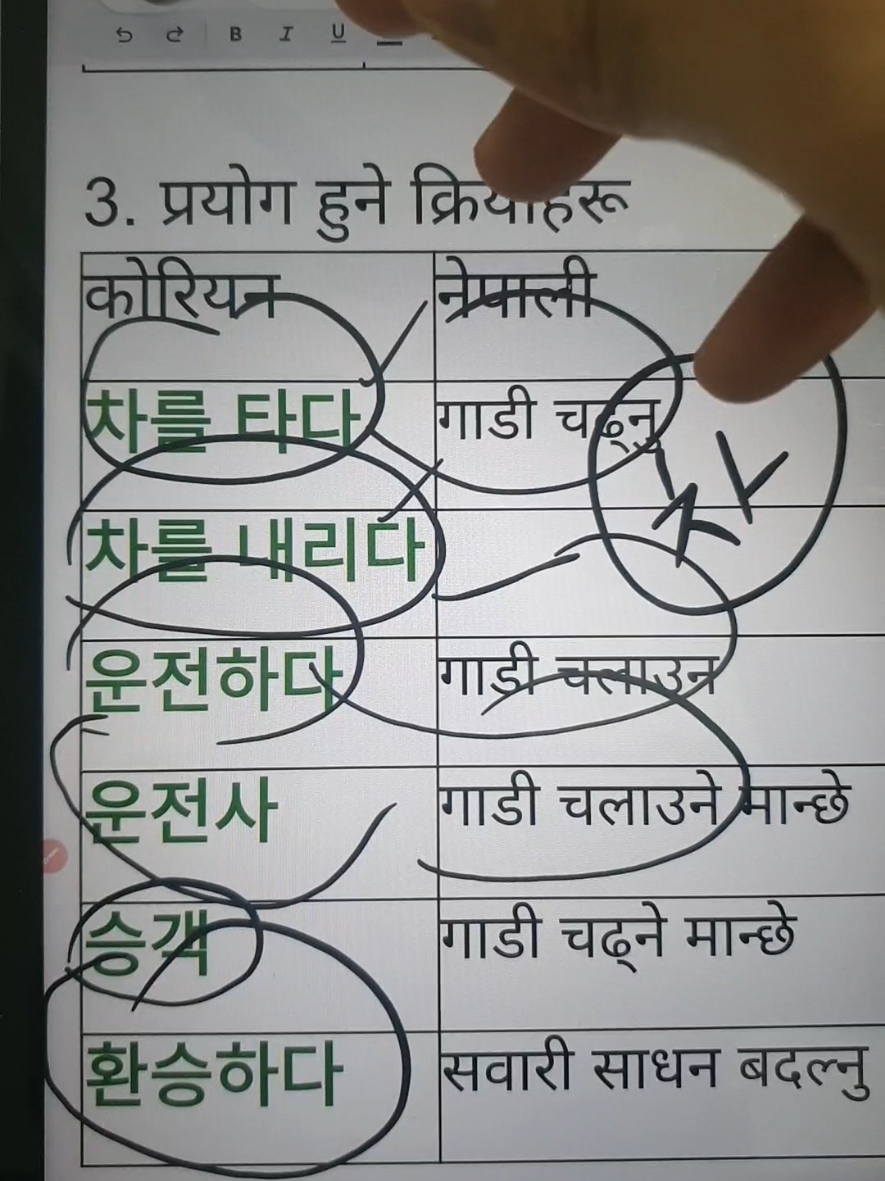 B I U
3. प्रयोग हुने क्रियाहरू
कोरियन नेपाली
차를 타다 गाडी चढ्नु
차를 내리다
운전하다 गाडी चलाउन
운전사 गाडी चलाउने मान्छे
승객 गाडी चढ्ने मान्छे
환승하다 सवारी साधन बदल्नु